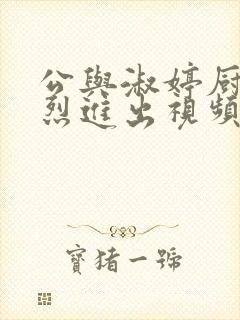 公與淑婷厨
烈進出視頻
寶猪一號